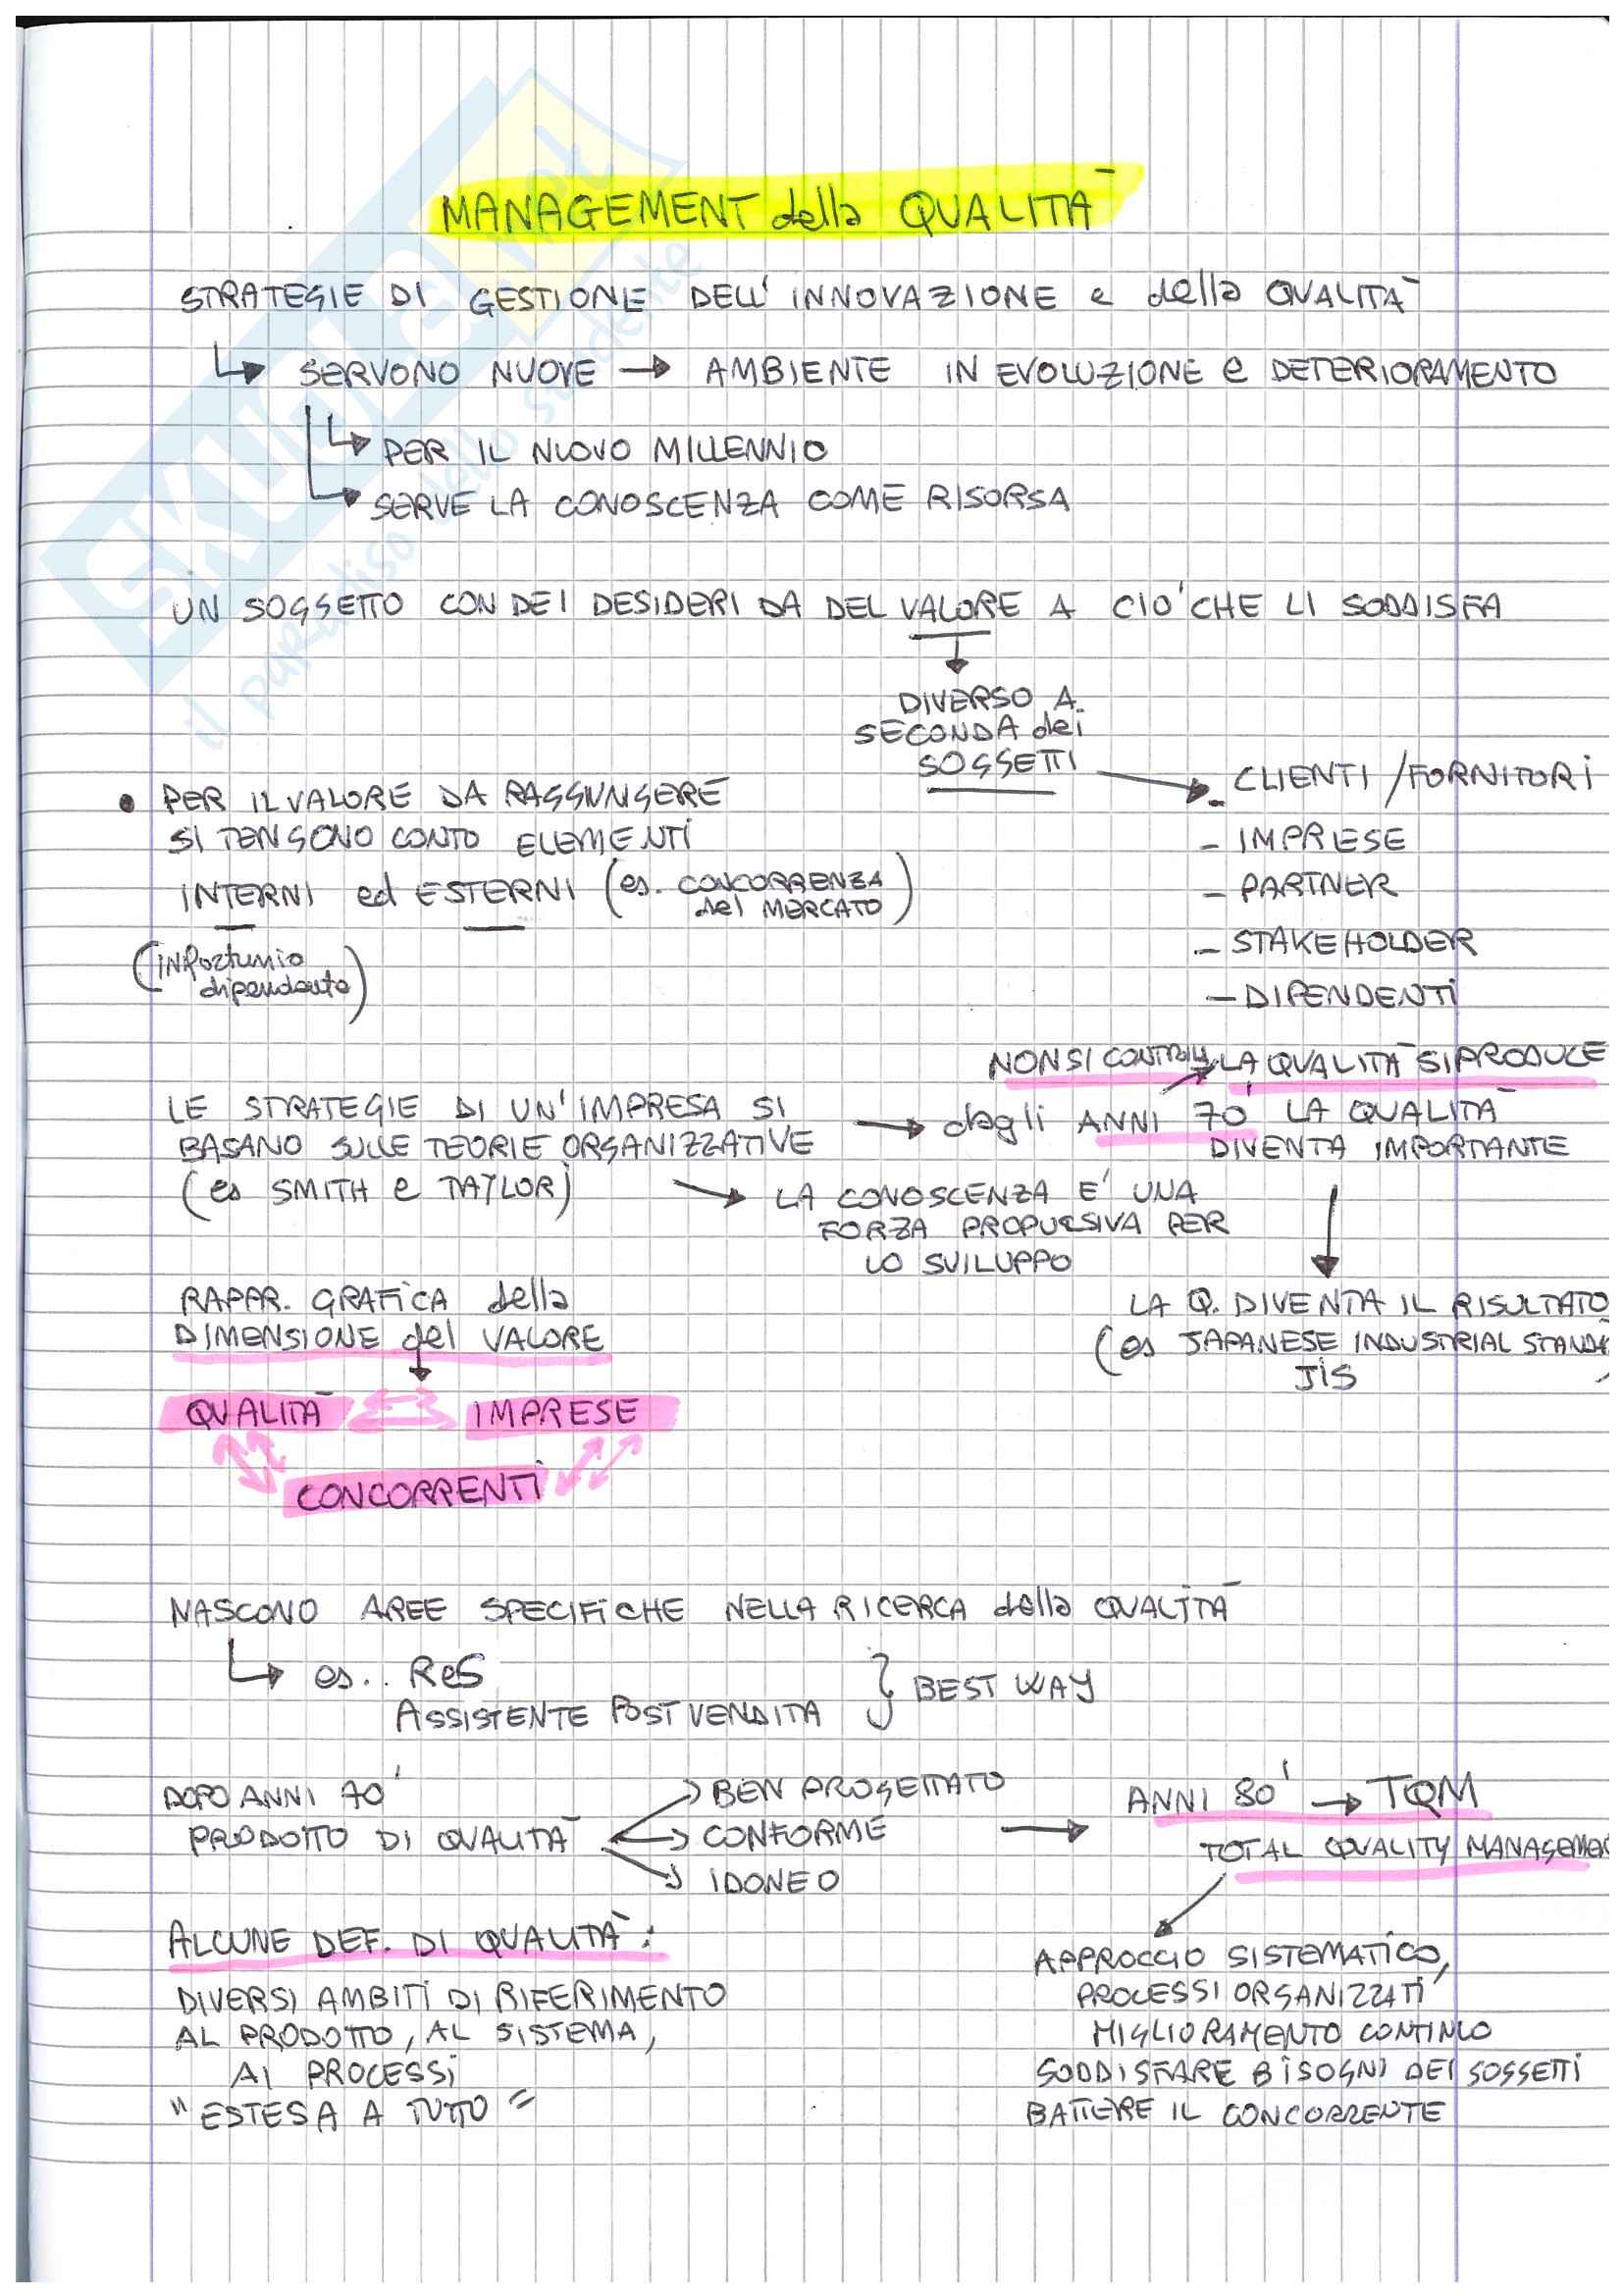 MANAGEMENT della QUALITÀ
STRATEGIE DI GESTIONE DELL'INNOVAZIONE e della QUALITÀ
SERVONO NUOVE → AMBIENTE IN EVOLUZIONE e DETERIORAMENTO
PER IL NUOVO MILLENNIO
SERVE LA CONOSCENZA COME RISORSA
UN SOGGETTO CON DEI DESIDERI DA DEL VALORE A CIO' CHE LI SODDISFA
DIVERSO A
SECONDA dei
SOGGETTI
- CLIENTI/FORNITORI
- IMPRESE
- PARTNER
- STAKEHOLDER
- DIPENDENTI
• PER IL VALORE DA RAGGIUNGERE
SI TENGONO CONTO ELEMENTI
INTERNI ed ESTERNI (es. CONCORRENZA
del MERCATO)
(INFortunio
dipendente)
NON SI CONTROLLA LA QUALITÀ SI PRODUCE
LE STRATEGIE DI UN'IMPRESA SI
BASANO SULLE TEORIE ORGANIZZATIVE
(es SMITH e TAYLOR)
→ dagli ANNI 70' LA QUALITÀ
DIVENTA IMPORTANTE
→ LA CONOSCENZA E' UNA
FORZA PROPULSIVA PER
LO SVILUPPO
LA Q. DIVENTA IL RISULTATO
(es JAPANESE INDUSTRIAL STAND
JIS
RAPPR. GRAFICA della
DIMENSIONE del VALORE
QUALITÀ IMPRESE
CONCORRENTI
NASCONO AREE SPECIFICHE NELLA RICERCA della QUALITÀ
es.. ReS
ASSISTENTE POST VENDITA } BEST WAY
DOPO ANNI 70'
PRODOTTO DI QUALITÀ
BEN PROGETTATO
CONFORME
IDONEO
ANNI 80' → TQM
TOTAL QUALITY MANAGEMEN
APPROCCIO SISTEMATICO,
PROCESSI ORGANIZZATI,
MIGLIORAMENTO CONTINUO
SODDISFARE BISOGNI DEI SOGGETTI
BATTERE IL CONCORRENTE
ALCUNE DEF. DI QUALITÀ:
DIVERSI AMBITI DI RIFERIMENTO
AL PRODOTTO, AL SISTEMA,
AI PROCESSI
"ESTESA A TUTTO"
SKUOLA.net
il paradiso dello studente